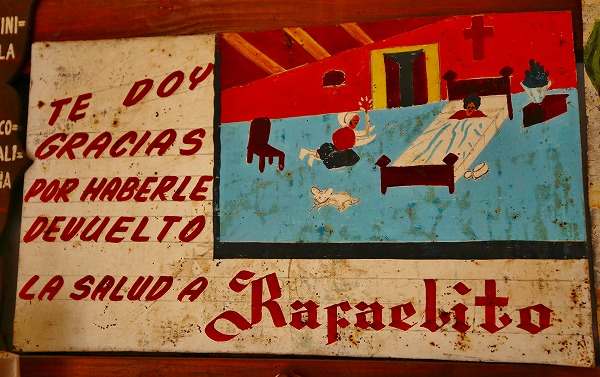 INI-
LA
CO-
ALI-
TE DOY
GRACIAS
POR HABERLE
DEVUELTO
LA SALUD A
Rafaelito